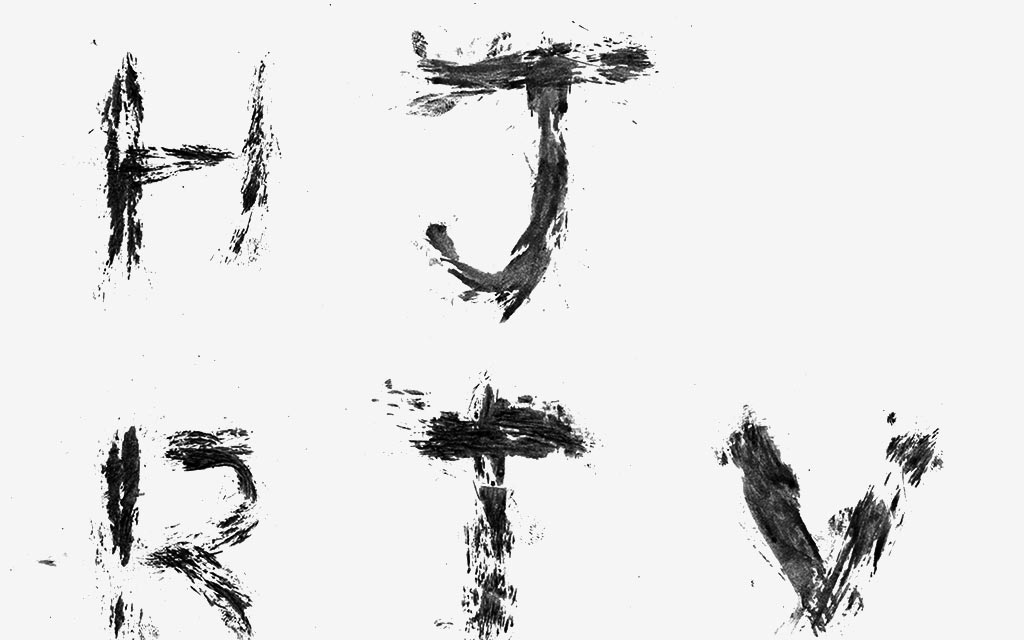 H J
R T V